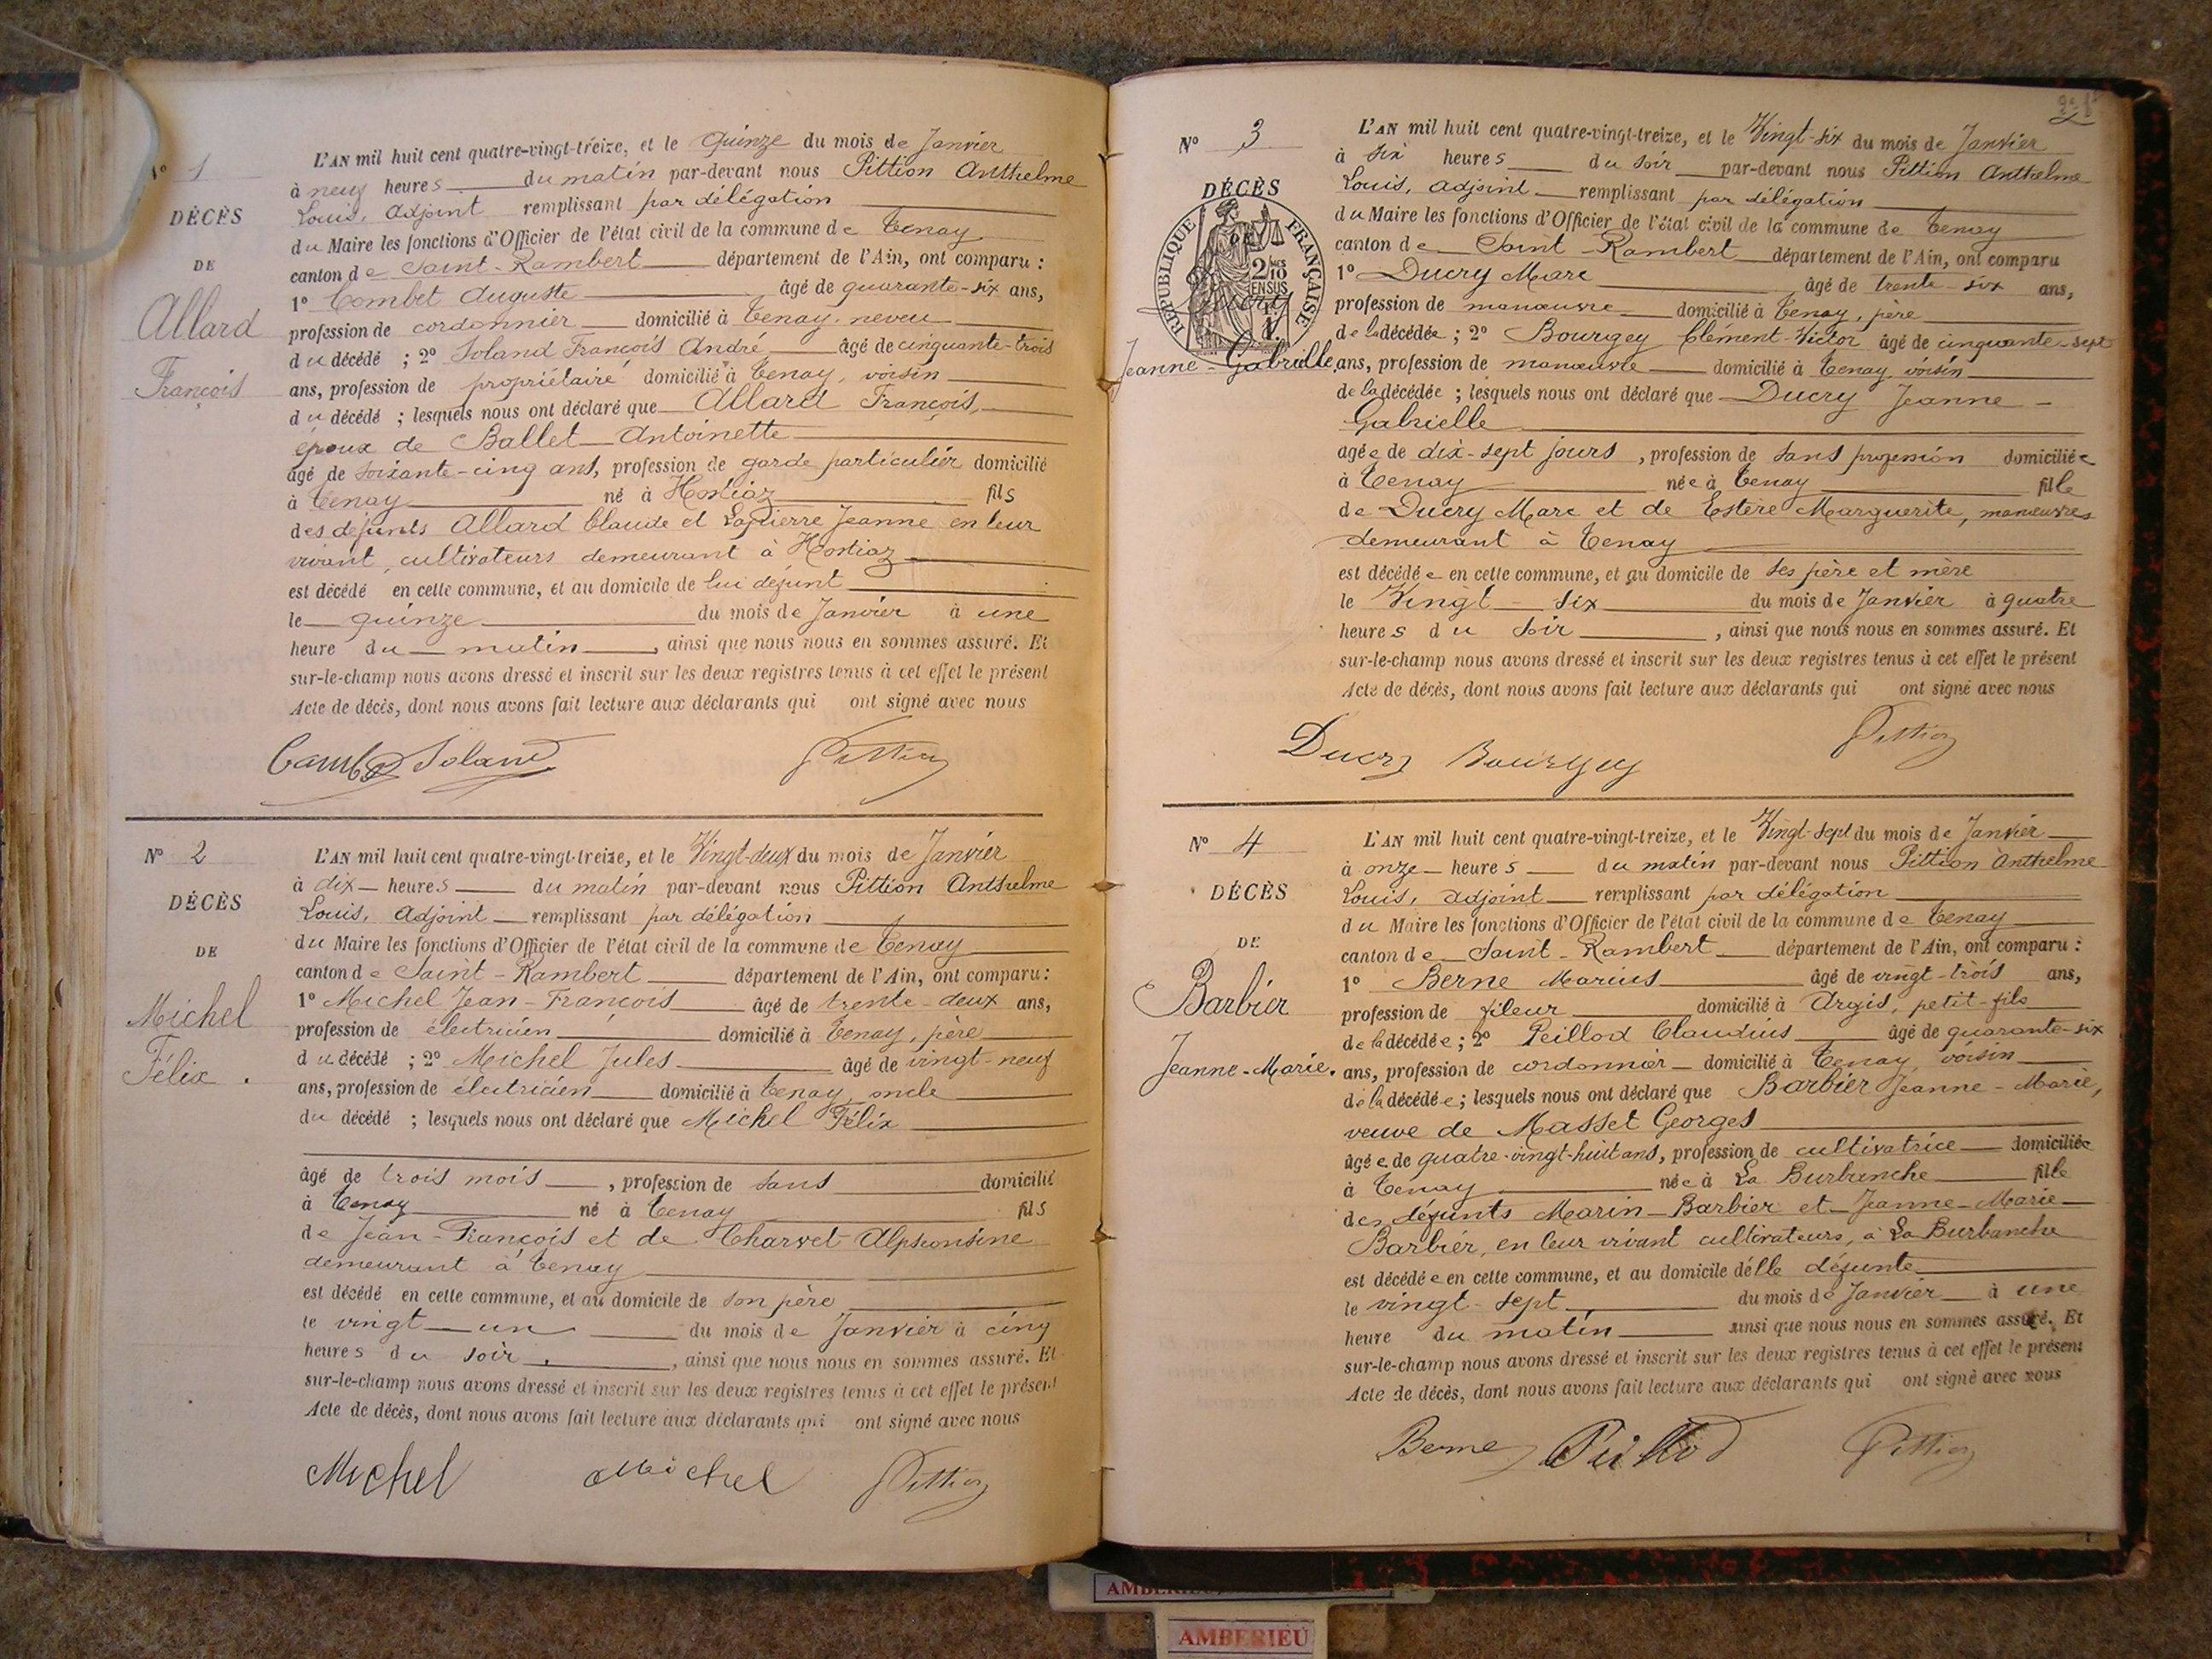 N° 1
DÉCÈS
DE
Allard
François
L'AN mil huit cent quatre-vingt-treize, et le quinze du mois de Janvier
à neuf heures du matin par-devant nous Pittion Anthelme
Louis, adjoint remplissant par délégation
du Maire les fonctions d'Officier de l'état civil de la commune de Tenay
canton de Saint-Rambert département de l'Ain, ont comparu :
1° Combet Auguste âgé de quarante-six ans,
profession de cordonnier domicilié à Tenay, neveu
du décédé ; 2° Soland François André âgé de cinquante-trois
ans, profession de propriétaire domicilié à Tenay, voisin
du décédé ; lesquels nous ont déclaré que Allard François,
époux de Ballet Antoinette
âgé de soixante-cinq ans, profession de garde particulier domicilié
à Tenay né à Hostiaz fils
des défunts Allard Claude et Lapierre Jeanne en leur
vivant, cultivateurs demeurant à Hostiaz
est décédé en cette commune, et au domicile de lui défunt
le quinze du mois de Janvier à une
heure du matin, ainsi que nous nous en sommes assuré. Et
sur-le-champ nous avons dressé et inscrit sur les deux registres tenus à cet effet le présent
Acte de décès, dont nous avons fait lecture aux déclarants qui ont signé avec nous
Soland Pittion
N° 2
DÉCÈS
DE
Michel
Félix.
L'AN mil huit cent quatre-vingt-treize, et le Vingt-deux du mois de Janvier
à dix heures du matin par-devant nous Pittion Anthelme
Louis, adjoint remplissant par délégation
du Maire les fonctions d'Officier de l'état civil de la commune de Tenay
canton de Saint-Rambert département de l'Ain, ont comparu :
1° Michel Jean-François âgé de trente-deux ans,
profession de électricien domicilié à Tenay, père
du décédé ; 2° Michel Jules âgé de vingt-neuf
ans, profession de électricien domicilié à Tenay, oncle
du décédé ; lesquels nous ont déclaré que Michel Félix
âgé de trois mois, profession de sans domicilié
à Tenay né à Tenay fils
de Jean-François et de Charvet Alphonsine
demeurant à Tenay
est décédé en cette commune, et au domicile de son père
le vingt-un du mois de Janvier à cinq
heures du soir, ainsi que nous nous en sommes assuré. Et
sur-le-champ nous avons dressé et inscrit sur les deux registres tenus à cet effet le présent
Acte de décès, dont nous avons fait lecture aux déclarants qui ont signé avec nous
Michel Michel Pittion
N° 3
DÉCÈS
DE
RÉPUBLIQUE FRANÇAISE
2/10 EN SUS
Jeanne-Gabrielle
L'AN mil huit cent quatre-vingt-treize, et le Vingt-six du mois de Janvier
à six heures du soir par-devant nous Pittion Anthelme
Louis, adjoint remplissant par délégation
du Maire les fonctions d'Officier de l'état civil de la commune de Tenay
canton de Saint-Rambert département de l'Ain, ont comparu
1° Ducry Marc âgé de trente-six ans,
profession de manœuvre domicilié à Tenay, père
de la décédée ; 2° Bourgey Clément-Victor âgé de cinquante-sept
ans, profession de manœuvre domicilié à Tenay, voisin
de la décédée ; lesquels nous ont déclaré que Ducry Jeanne-
Gabrielle
agée de dix-sept jours, profession de sans profession domiciliée
à Tenay née à Tenay fille
de Ducry Marc et de Estère Marguerite, manœuvres
demeurant à Tenay
est décédée en cette commune, et au domicile de ses père et mère
le Vingt-six du mois de Janvier à quatre
heures du soir, ainsi que nous nous en sommes assuré. Et
sur-le-champ nous avons dressé et inscrit sur les deux registres tenus à cet effet le présent
Acte de décès, dont nous avons fait lecture aux déclarants qui ont signé avec nous
Ducry Bourgey Pittion
N° 4
DÉCÈS
DE
Barbier
Jeanne-Marie.
L'AN mil huit cent quatre-vingt-treize, et le Vingt-sept du mois de Janvier
à onze heures du matin par-devant nous Pittion Anthelme
Louis, adjoint remplissant par délégation
du Maire les fonctions d'Officier de l'état civil de la commune de Tenay
canton de Saint-Rambert département de l'Ain, ont comparu :
1° Berne Marius âgé de vingt-trois ans,
profession de fileur domicilié à Argis, petit-fils
de la décédée ; 2° Peillod Claudius âgé de quarante-six
ans, profession de cordonnier domicilié à Tenay, voisin
de la décédée ; lesquels nous ont déclaré que Barbier Jeanne-Marie,
veuve de Masset Georges
âgée de quatre-vingt-huit ans, profession de cultivatrice domiciliée
à Tenay née à La Burbanche fille
des défunts Marin Barbier et Jeanne-Marie
Barbier, en leur vivant cultivateurs, à La Burbanche
est décédée en cette commune, et au domicile d'elle défunte
le vingt-sept du mois de Janvier à une
heure du matin ainsi que nous nous en sommes assuré. Et
sur-le-champ nous avons dressé et inscrit sur les deux registres tenus à cet effet le présent
Acte de décès, dont nous avons fait lecture aux déclarants qui ont signé avec nous
Berne Peillod Pittion
AMBERIEU
AMBERIEU